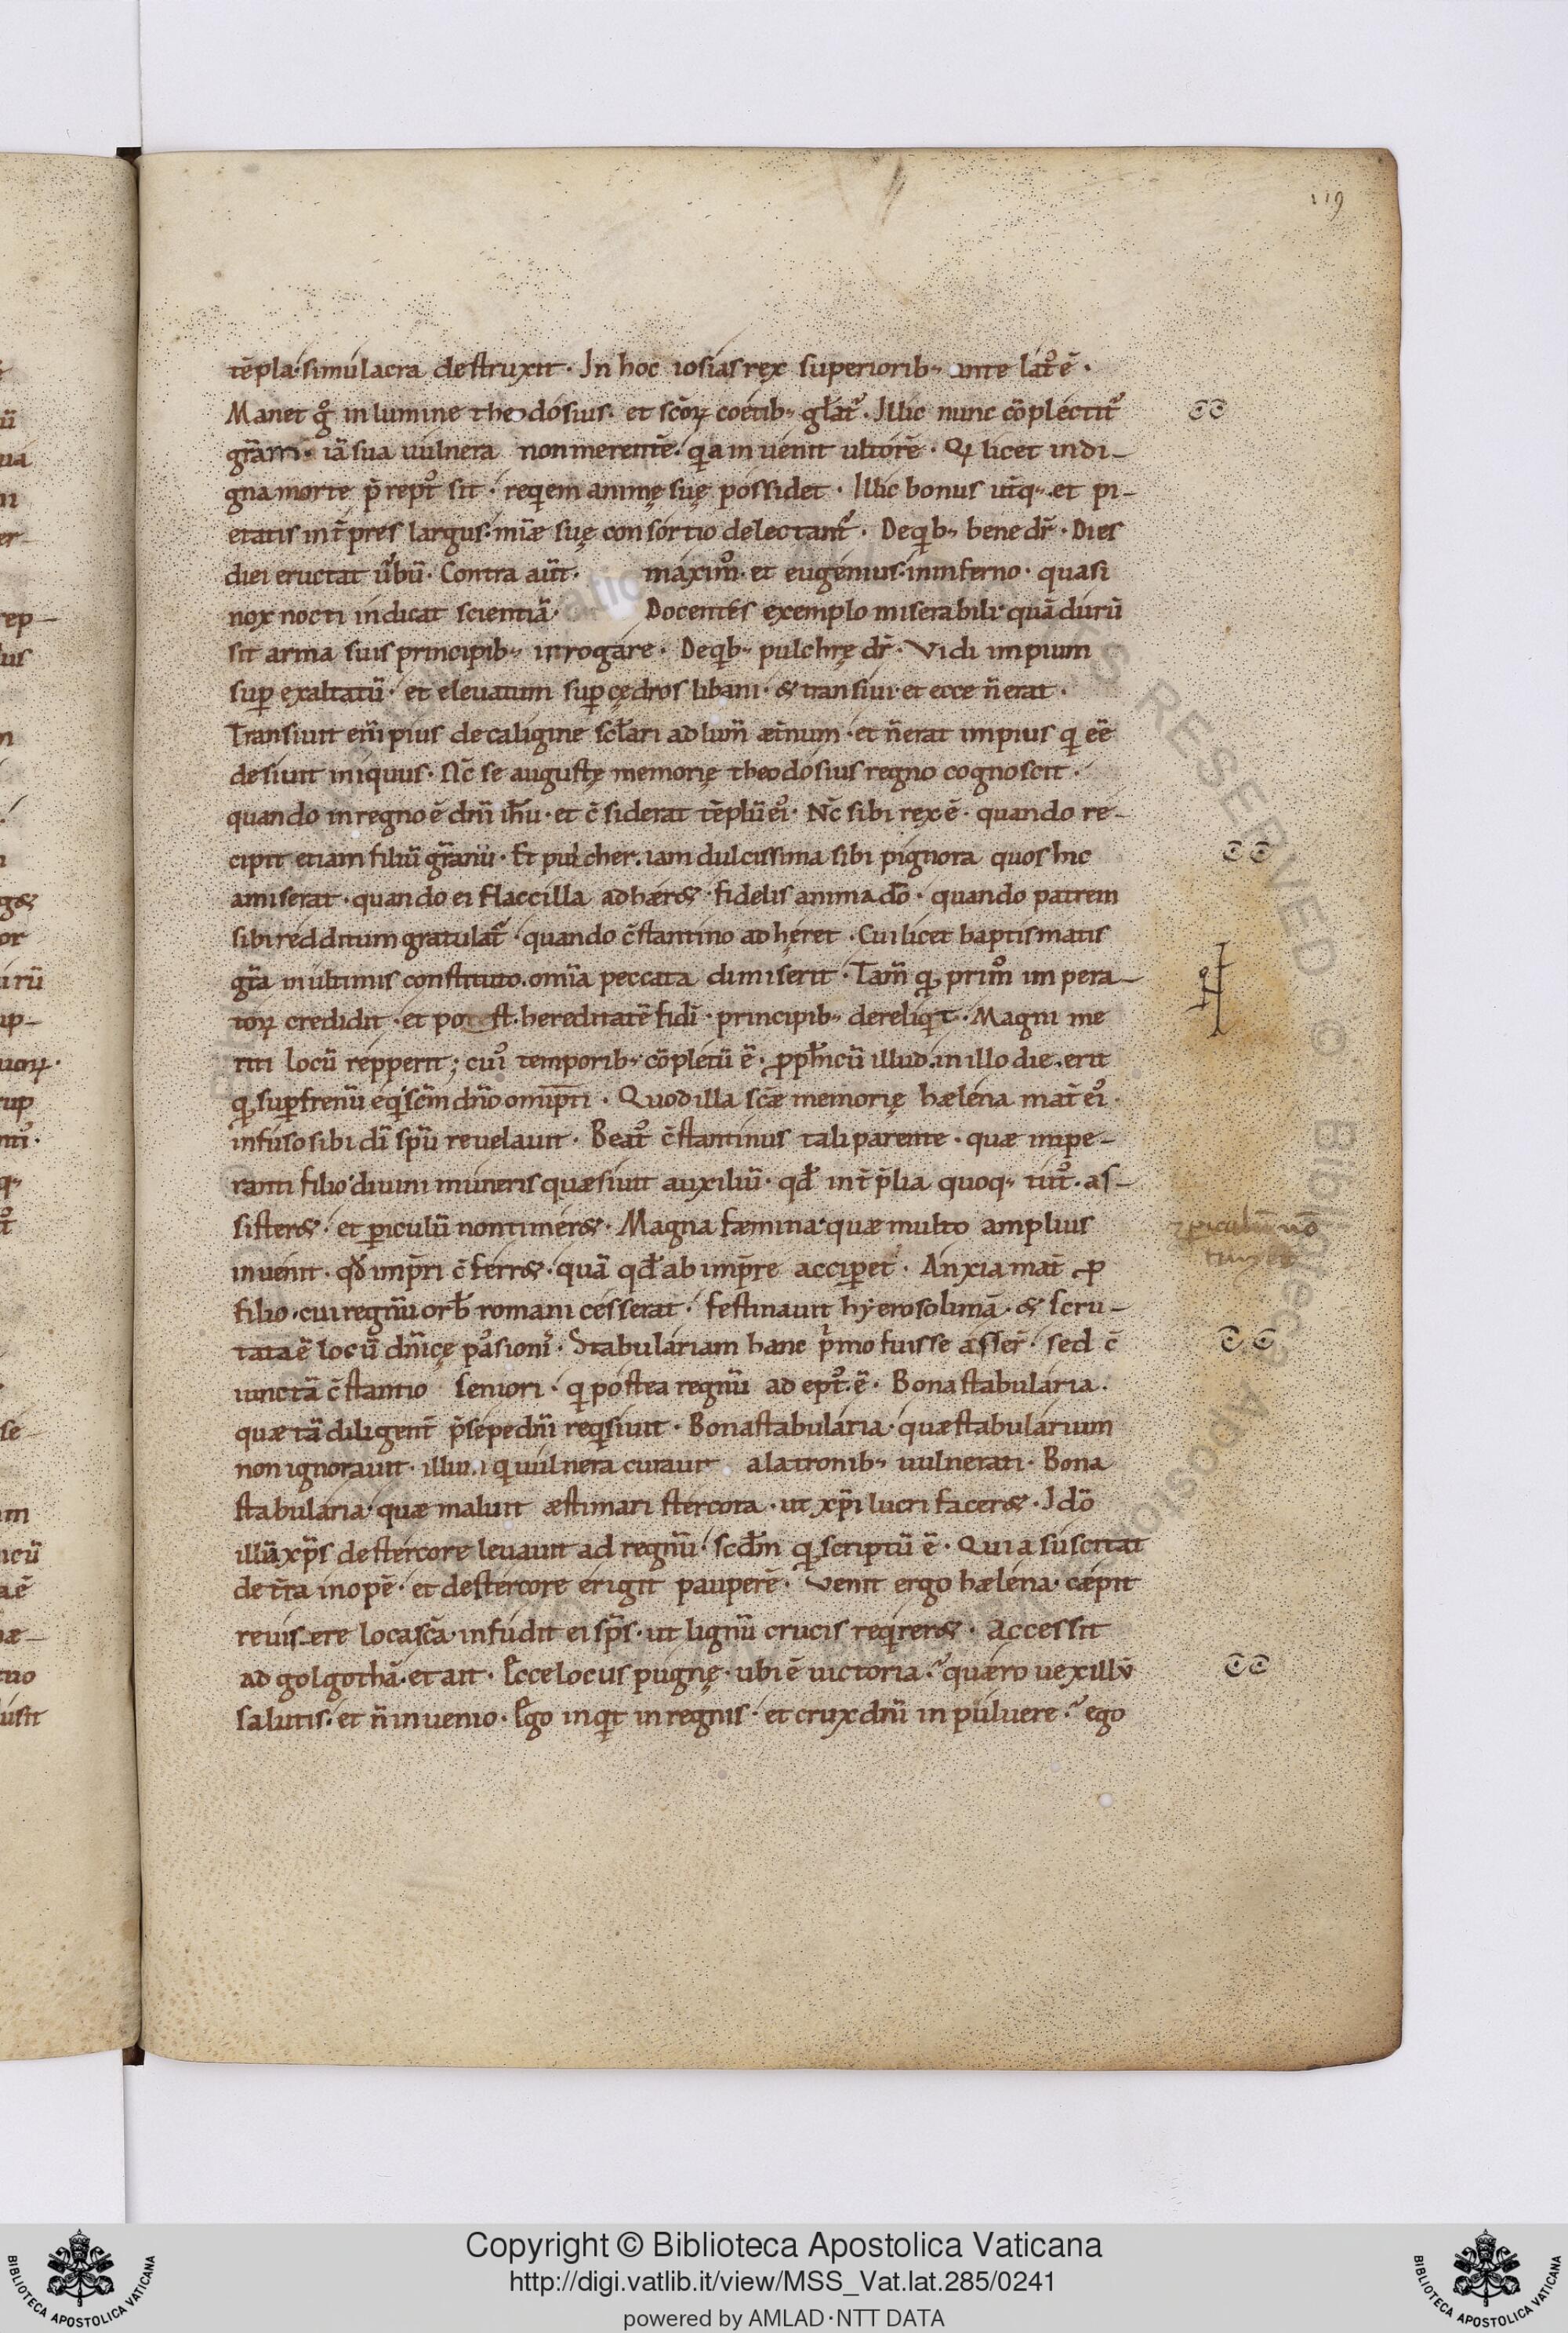 119
tēpla· simulacra destruxit· In hoc iosias rex superiorib; ante lat᷒ ē·
Manet g̊ in lumine theodosius· et sc̄oꝝ coetib; gl̄at᷒· Illic nunc cōplectit᷒
gr̄am· iā sua uulnera non merentē· quia inuenit ultorē· Qui licet indi-
gna morte p̄rept᷒ sit· requiem animę suę possidet· Illic bonus ut̄q; et pi-
etatis int̄pres largus· mīæ suę consortio delectant᷒· De quib; bene dr̄· Dies
diei eructat ūbū· Contra aūt· maxim᷒· et eugenius· in inferno· quasi
nox nocti indicat scientiā· Docentes exemplo miserabili· quā durū
sit arma suis principib; irrogare· De quib; pulchrę dr̄· Vidi impium
suꝑ exaltatū· et eleuatum suꝑ cędros libani· & transiui· et ecce n̄ erat·
Transiuit eni̅ pius de caligine scl̄ari ad lum̄ æt̄num· et n̄ erat impius qui ēē
desiuit iniquus· Nc̄ se augustę memorię theodosius regno cognoscit·
quando in regno ē dn̄i ihū· et c̄siderat tēplū ei᷒· Nc̄ sibi rex ē· quando re-
cipit etiam filiū gr̄anū· Et pulcher· iam dulcissima sibi pignora quos hic
amiserat· quando ei flaccilla adhær&· fidelis anima dō· quando patrem
sibi redditum gratulat᷒· quando c̄stantino adhęret· Cui licet baptismatis
gr̄a in ultimis constituto· om̄ia peccata dimiserit· Tam̄ quod prim᷒ impera-
toꝝ credidit· et post· hereditatē fidi̅· principib; dereliquit· Magni me
riti locū repperit; cui᷒ temporib; cōpletū ē· ꝓph̄icū illud· in illo die· erit
quod suꝑ frenū equi sc̄m dn̄o omīpti· Quod illa sc̄æ memorię hælena mat̄ ei᷒·
infuso sibi di̅ spū reuelauit· Beat᷒ c̄stantinus tali parente· quæ impe-
ranti filio diuini muneris quæsiuit auxiliū· qd̄ int̄ p̄lia quoq; tut᷒· as-
sister&· et ꝑiculū non timer&· Magna fæmina· quæ multo amplius
inuenit· qd̄ imp̄ri c̄ferr&· quā qd̄ ab imp̄re acciꝑet· Anxia mat̄ ꝓ
filio· cui regnū orb̄ romani cesserat· festinauit hyerosolimā· & scru-
tata ē locū dn̄icę passioni᷒· Stabulariam hanc primo fuisse asser̄· sed c̄
iunctā c̄stantio seniori· qui postea regnū adept᷒· ē· Bona stabularia·
quæ tā diligent̄ p̄sepe dn̄i requisiuit· Bona stabularia· quæ stabularium
non ignorauit· illum qui uulnera curauit a latronib; uulnerati· Bona
stabularia· quæ maluit æstimari stercora· ut xp̄i lucri facer&· Idō
illā xp̄s de stercore leuauit ad regnū· scd̄m quod scriptū ē· Quia suscitat
de t̄ra inopē· et de stercore erigit pauperē· Venit ergo hælena· cæpit
reuisere loca sc̄a· infudit ei sp̄s· ut lignū crucis requirer&· Accessit
ad golgothā· et ait· Ecce locus pugnę· ubi ē uictoria? quæro uexillū
salutis· et n̄ inuenio· Ego inquit in regnis· et crux dn̄i in puluere? ego
ꝑiculū nō
tim&
Copyright © Biblioteca Apostolica Vaticana
http://digi.vatlib.it/view/MSS_Vat.lat.285/0241
powered by AMLAD·NTT DATA
BIBLIOTECA APOSTOLICA VATICANA
BIBLIOTECA APOSTOLICA VATICANA